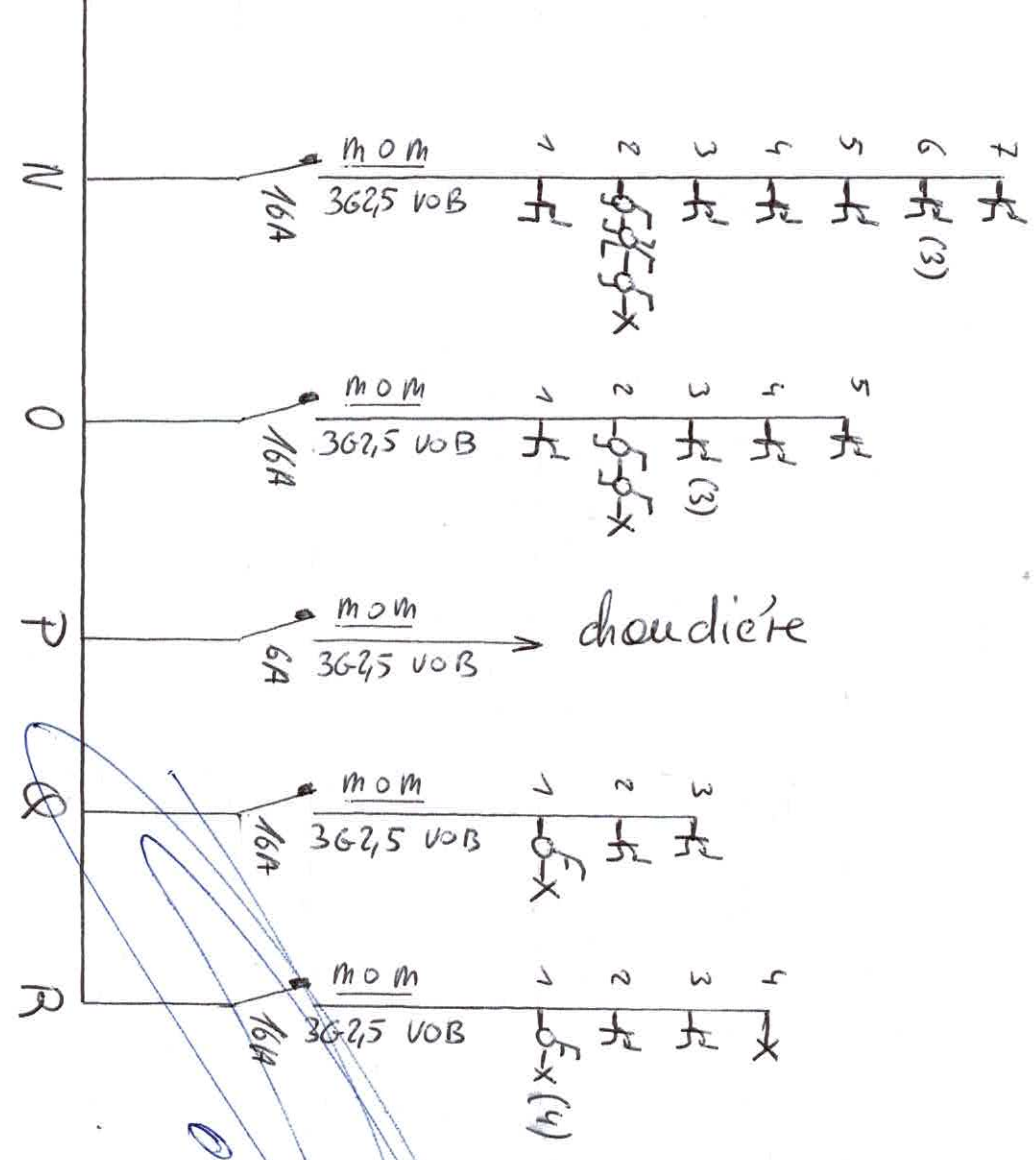 N
16A
mom
3G2,5 VOB
1 2 3 4 5 6 (3) 7
O
16A
mom
3G2,5 VOB
1 2 3 (3) 4 5
P
6A
mom
3G2,5 VOB
chaudière
Q
16A
mom
3G2,5 VOB
1 2 3
R
16A
mom
3G2,5 VOB
1 (4) 2 3 4